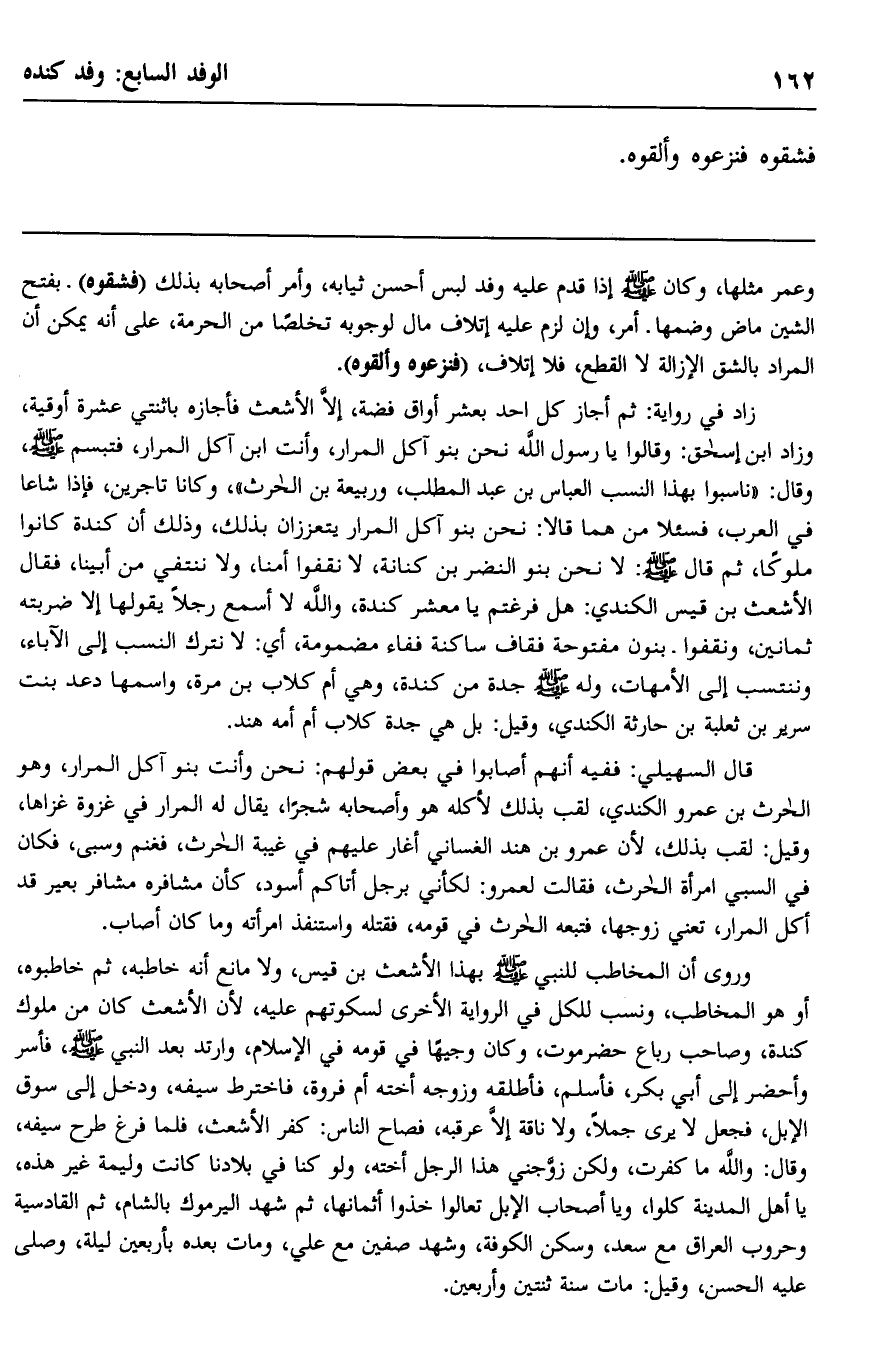 ١٦٢ الوفد السابع: وفد كنده
فشقوه فنزعوه وألقوه.
وعمر مثلها، وكان ﷺ إذا قدم عليه وفد لبس أحسن ثيابه، وأمر أصحابه بذلك (فشقوه) ـ بفتح
الشين ماض وضمها ـ أمر، وإن لزم عليه إتلاف مال لوجوبه تخلصًا من الحرمة، على أنه يمكن أن
المراد بالشق الإزالة لا القطع، فلا إتلاف، (فنزعوه وألقوه).
زاد في رواية: ثم أجاز كل احد بعشر أواق فضة، إلاَّ الأشعث فأجازه باثنتي عشرة أوقية،
وزاد ابن إسحٰق: وقالوا يا رسول اللَّه نحن بنو آكل المرار، وأنت ابن آكل المرار، فتبسم ﷺ،
وقال: «ناسبوا بهذا النسب العباس بن عبد المطلب، وربيعة بن الحٰرث»، وكانا تاجرين، فإذا شاعا
في العرب، فسئلا من هما قالا: نحن بنو آكل المرار يتعززان بذلك، وذلك أن كندة كانوا
ملوكًا، ثم قال ﷺ: لا نحن بنو النضر بن كنانة، لا نقفوا أمنا، ولا ننتفي من أبينا، فقال
الأشعث بن قيس الكندي: هل فرغتم يا معشر كندة، واللَّه لا أسمع رجلاً يقولها إلا ضربته
ثمانين، ونقفوا ـ بنون مفتوحة فقاف ساكنة ففاء مضمومة، أي: لا نترك النسب إلى الآباء،
وننتسب إلى الأمهات، وله ﷺ جدة من كندة، وهي أم كلاب بن مرة، واسمها دعد بنت
سرير بن ثعلبة بن حارثة الكندي، وقيل: بل هي جدة كلاب أم أمه هند.
قال السهيلي: ففيه أنهم أصابوا في بعض قولهم: نحن وأنت بنو آكل المرار، وهو
الحٰرث بن عمرو الكندي، لقب بذلك لأكله هو وأصحابه شجرًا، يقال له المرار في غزوة غزاها،
وقيل: لقب بذلك، لأن عمرو بن هند الغساني أغار عليهم في غيبة الحٰرث، فغنم وسبى، فكان
في السبي امرأة الحٰرث، فقالت لعمرو: لكأني برجل أتاكم أسود، كأن مشافره مشافر بعير قد
أكل المرار، تعني زوجها، فتبعه الحٰرث في قومه، فقتله واستنفذ امرأته وما كان أصاب.
وروى أن المخاطب للنبي ﷺ بهذا الأشعث بن قيس، ولا مانع أنه خاطبه، ثم خاطبوه،
أو هو المخاطب، ونسب للكل في الرواية الأخرى لسكوتهم عليه، لأن الأشعث كان من ملوك
كندة، وصاحب رباع حضرموت، وكان وجيهًا في قومه في الإسلام، وارتد بعد النبي ﷺ، فأسر
وأحضر إلى أبي بكر، فأسلم، فأطلقه وزوجه أخته أم فروة، فاخترط سيفه، ودخل إلى سوق
الإبل، فجعل لا يرى جملاً، ولا ناقة إلاَّ عرقبه، فصاح الناس: كفر الأشعث، فلما فرغ طرح سيفه،
وقال: واللَّه ما كفرت، ولكن زوَّجني هذا الرجل أخته، ولو كنا في بلادنا كانت وليمة غير هذه،
يا أهل المدينة كلوا، ويا أصحاب الإبل تعالوا خذوا أثمانها، ثم شهد اليرموك بالشام، ثم القادسية
وحروب العراق مع سعد، وسكن الكوفة، وشهد صفين مع علي، ومات بعده بأربعين ليلة، وصلى
عليه الحسن، وقيل: مات سنة ثنتين وأربعين.